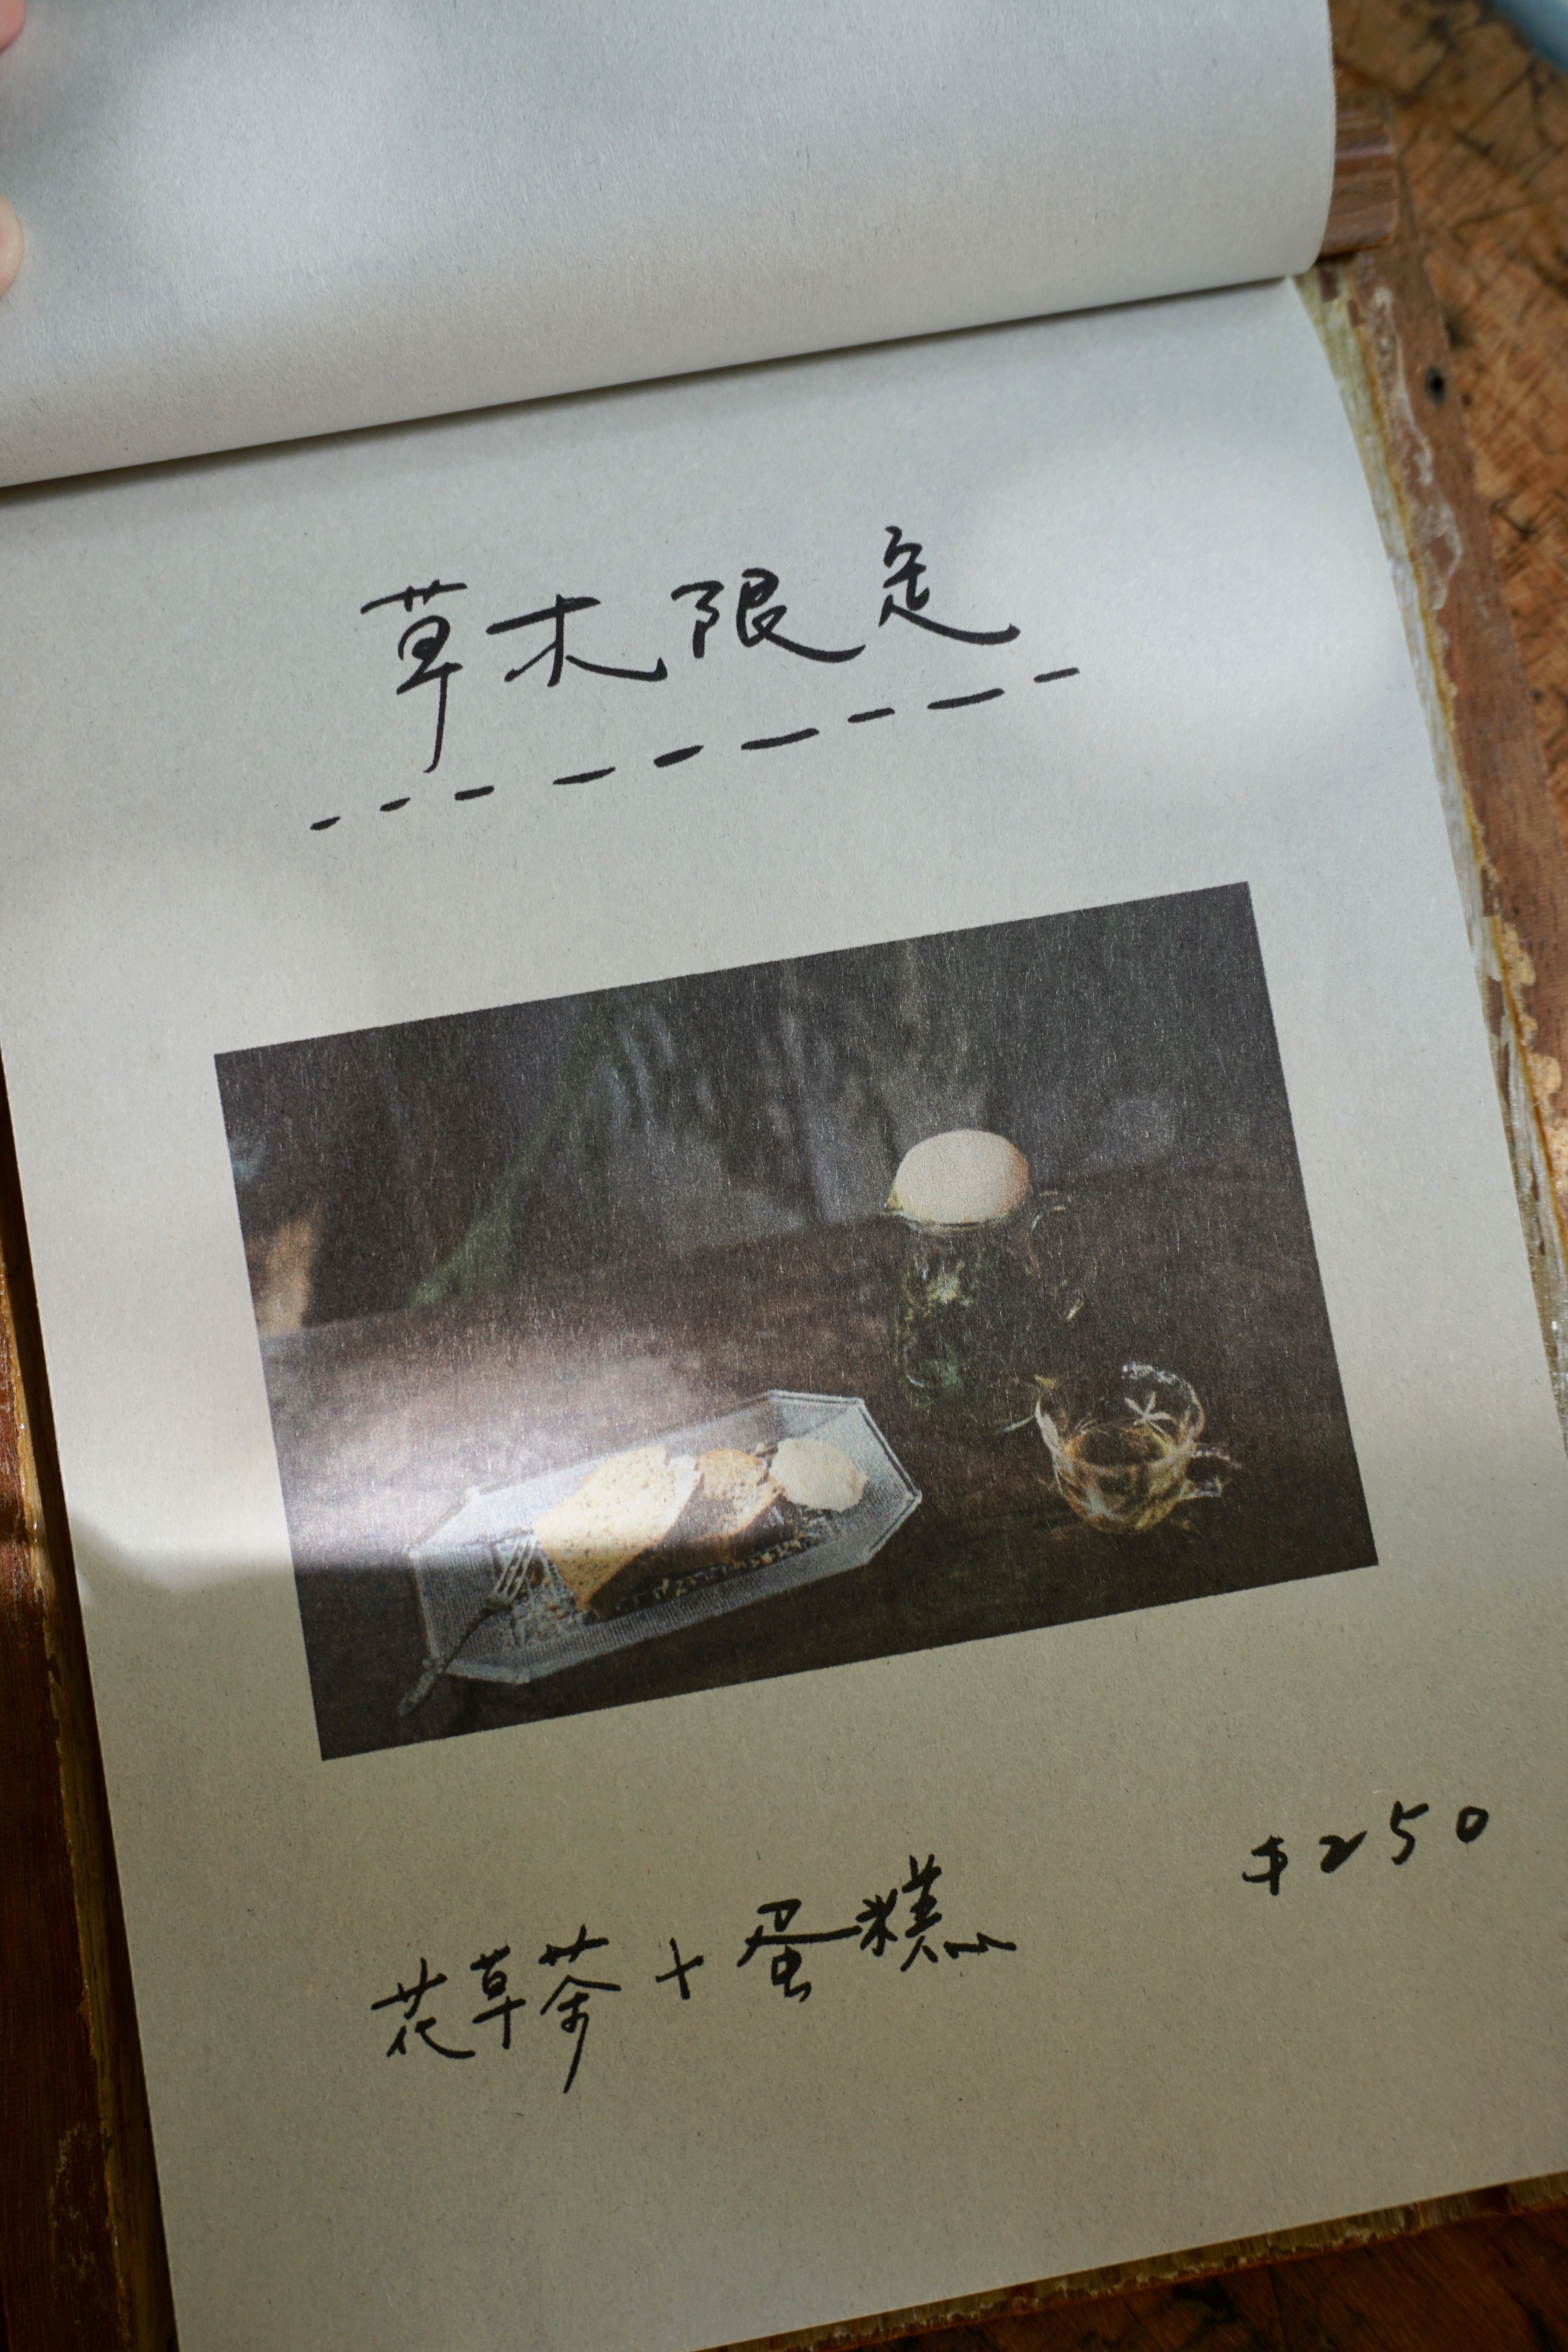 草木限定
花草茶+蛋糕
$250